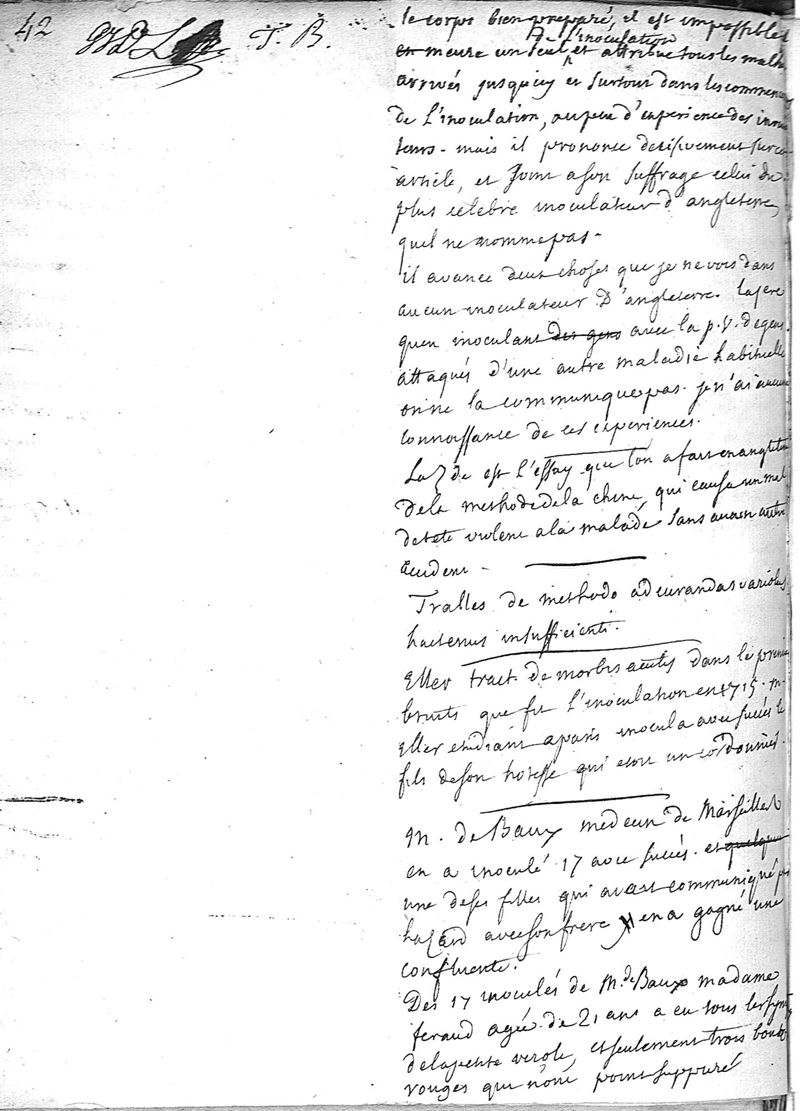 42
T. B.
le corps bien preparé, il est impossible
de l'inoculation
en meure un seul et attribue tous les malh
arrivés jusqu'icy et surtout dans les commen
de L'inoculation, au peu d'experience des inocu
teurs - mais il prononce decisivement sur ce
article, et Joint a son suffrage celui du
plus celebre inoculateur d'angleterre,
quil ne nomme pas -
il avance deux choses que je ne vois dans
aucun inoculateur D'angleterre. La 1ere
quen inoculant des gens avec la p. v. de gens
attaqués d'une autre maladie habituelle
on ne la communique pas. je n'ai aucune
connoissance de ces experiences.
La 2de est L'essay que l'on a fait en anglete
de la methode de la chine, qui causa un mal
de tete violent a la malade sans aucun autre
accident -
Tralles de methodo ad curandas variolas
hactenus insufficienti.
Eller tract. de morbis acutis dans le premier
bruits que fit L'inoculation en 1715. m.
Eller etudiant a paris inocula avec succès le
fils de son hotesse qui etoit un cordonnier.
M. de Baux medecin de Marseille
en a inoculé 17 avec succès. et quelqu
une de ses filles qui avait communiqué p
hazard avec son frere en a gagné une
confluente.
Des 17 inoculés de M. de Baux madame
feraud agée de 21 ans a eu tous les sym
de la petite verole, et seulement trois bouto
rouges qui n'ont point suppuré